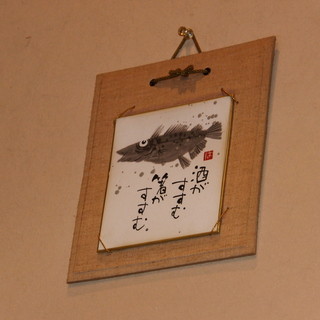 酒が
すすむ
箸が
すすむ。